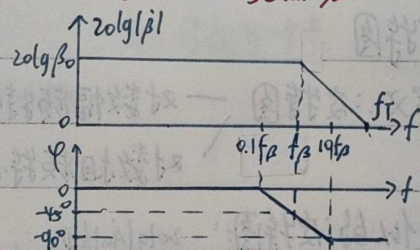 20lg|β̇|
20lgβ₀
f_T
0
f
0.1f_β
f_β
10f_β
φ
0
f
-45°
-90°